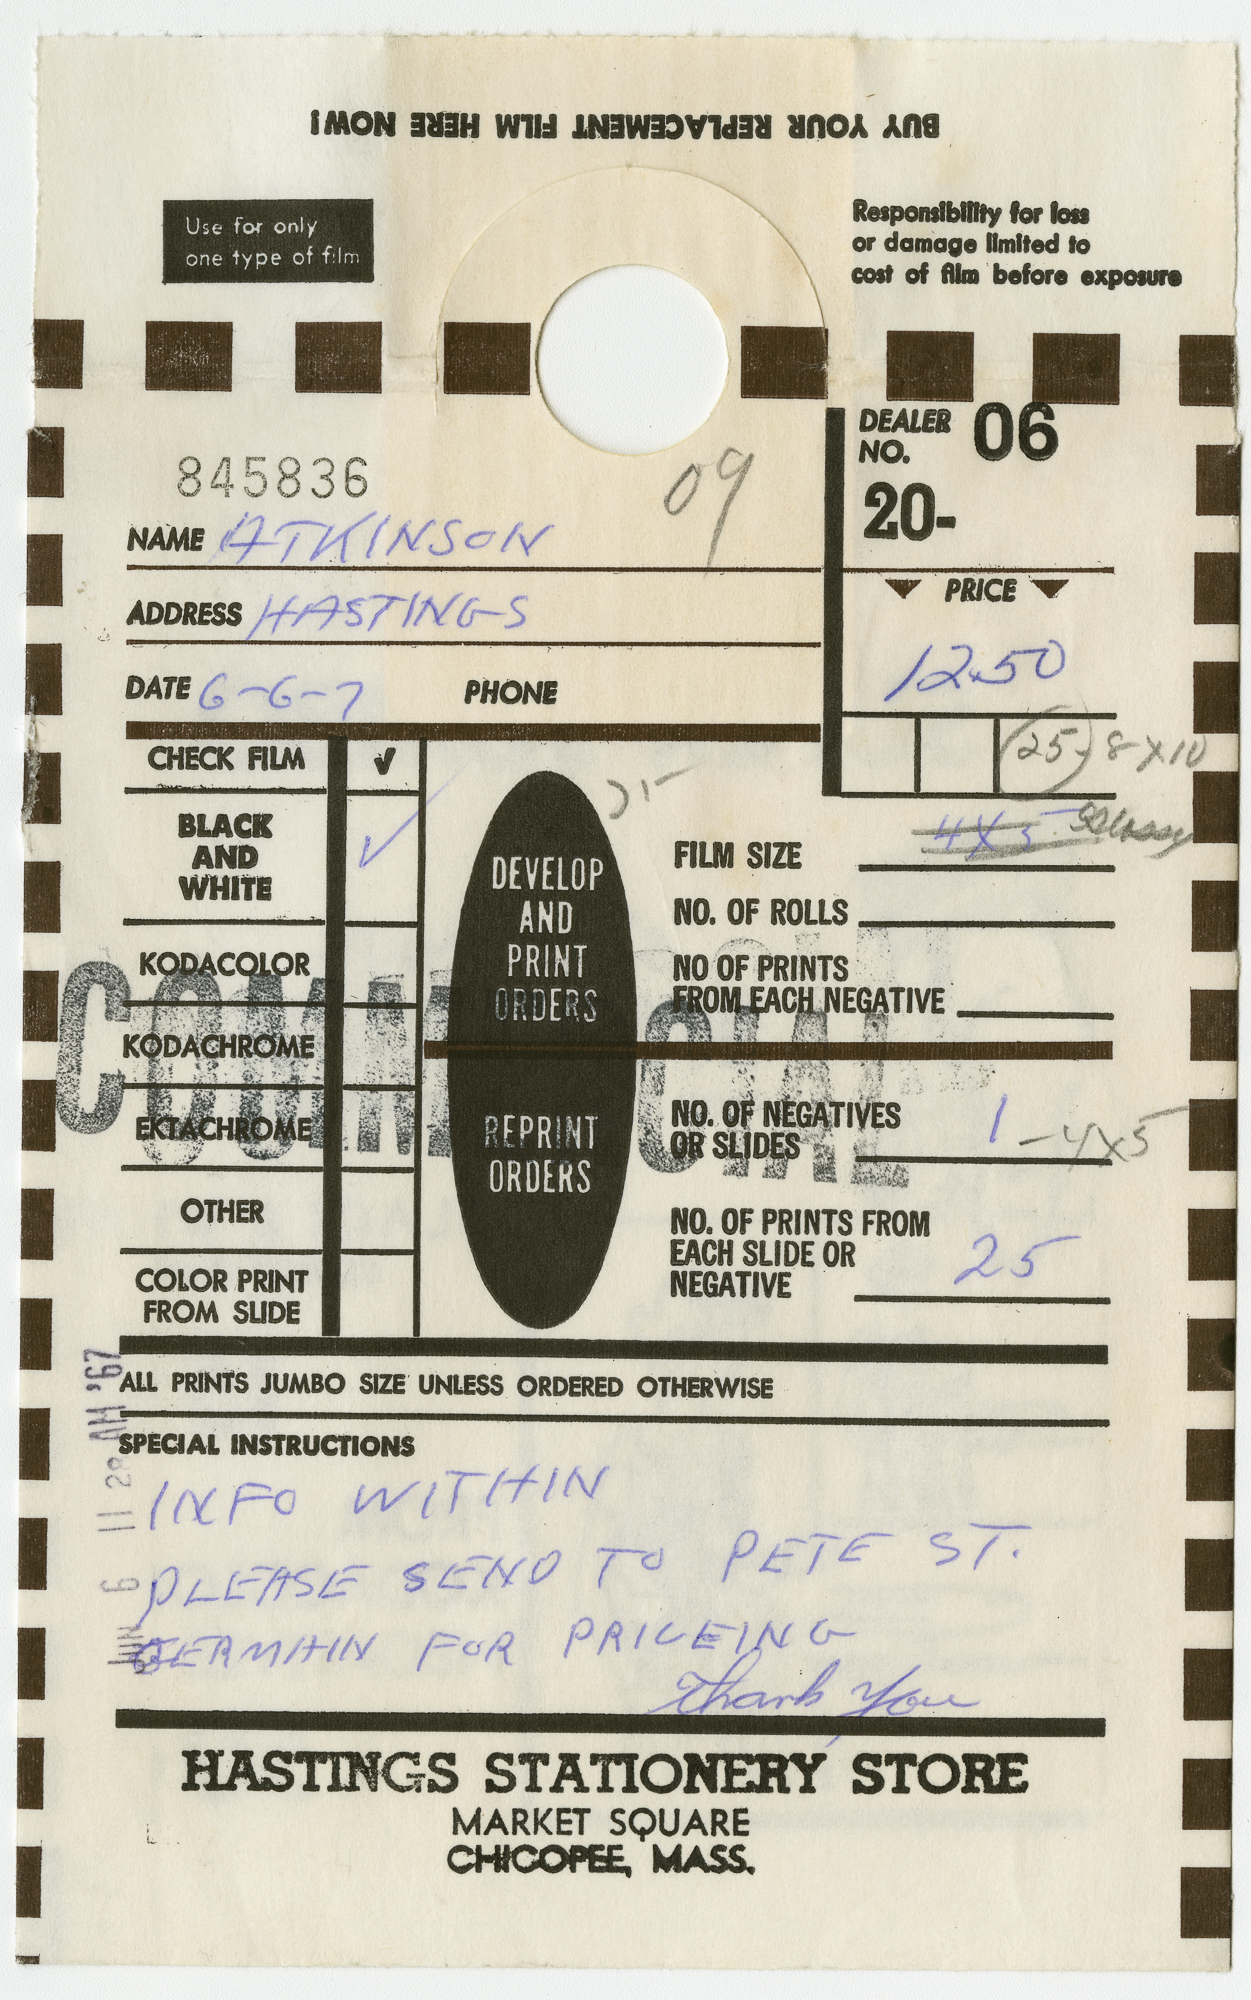 BUY YOUR REPLACEMENT FILM HERE NOW!
Use for only
one type of film
Responsibility for loss
or damage limited to
cost of film before exposure
DEALER NO. 06
20-
845836
09
NAME ATKINSON
ADDRESS HASTINGS
DATE 6-6-7 PHONE
PRICE
12.50
25 8X10
Glossy
CHECK FILM ✓
BLACK
AND
WHITE ✓
KODACOLOR
KODACHROME
EKTACHROME
OTHER
COLOR PRINT
FROM SLIDE
COMMERCIAL
DEVELOP
AND
PRINT
ORDERS
REPRINT
ORDERS
FILM SIZE 4X5
NO. OF ROLLS
NO OF PRINTS
FROM EACH NEGATIVE
NO. OF NEGATIVES
OR SLIDES 1 -4X5
NO. OF PRINTS FROM
EACH SLIDE OR
NEGATIVE 25
ALL PRINTS JUMBO SIZE UNLESS ORDERED OTHERWISE
JUN 6 11 28 AM '67
SPECIAL INSTRUCTIONS
INFO WITHIN
PLEASE SEND TO PETE ST.
GERMAIN FOR PRICEING
Thank You
HASTINGS STATIONERY STORE
MARKET SQUARE
CHICOPEE, MASS.